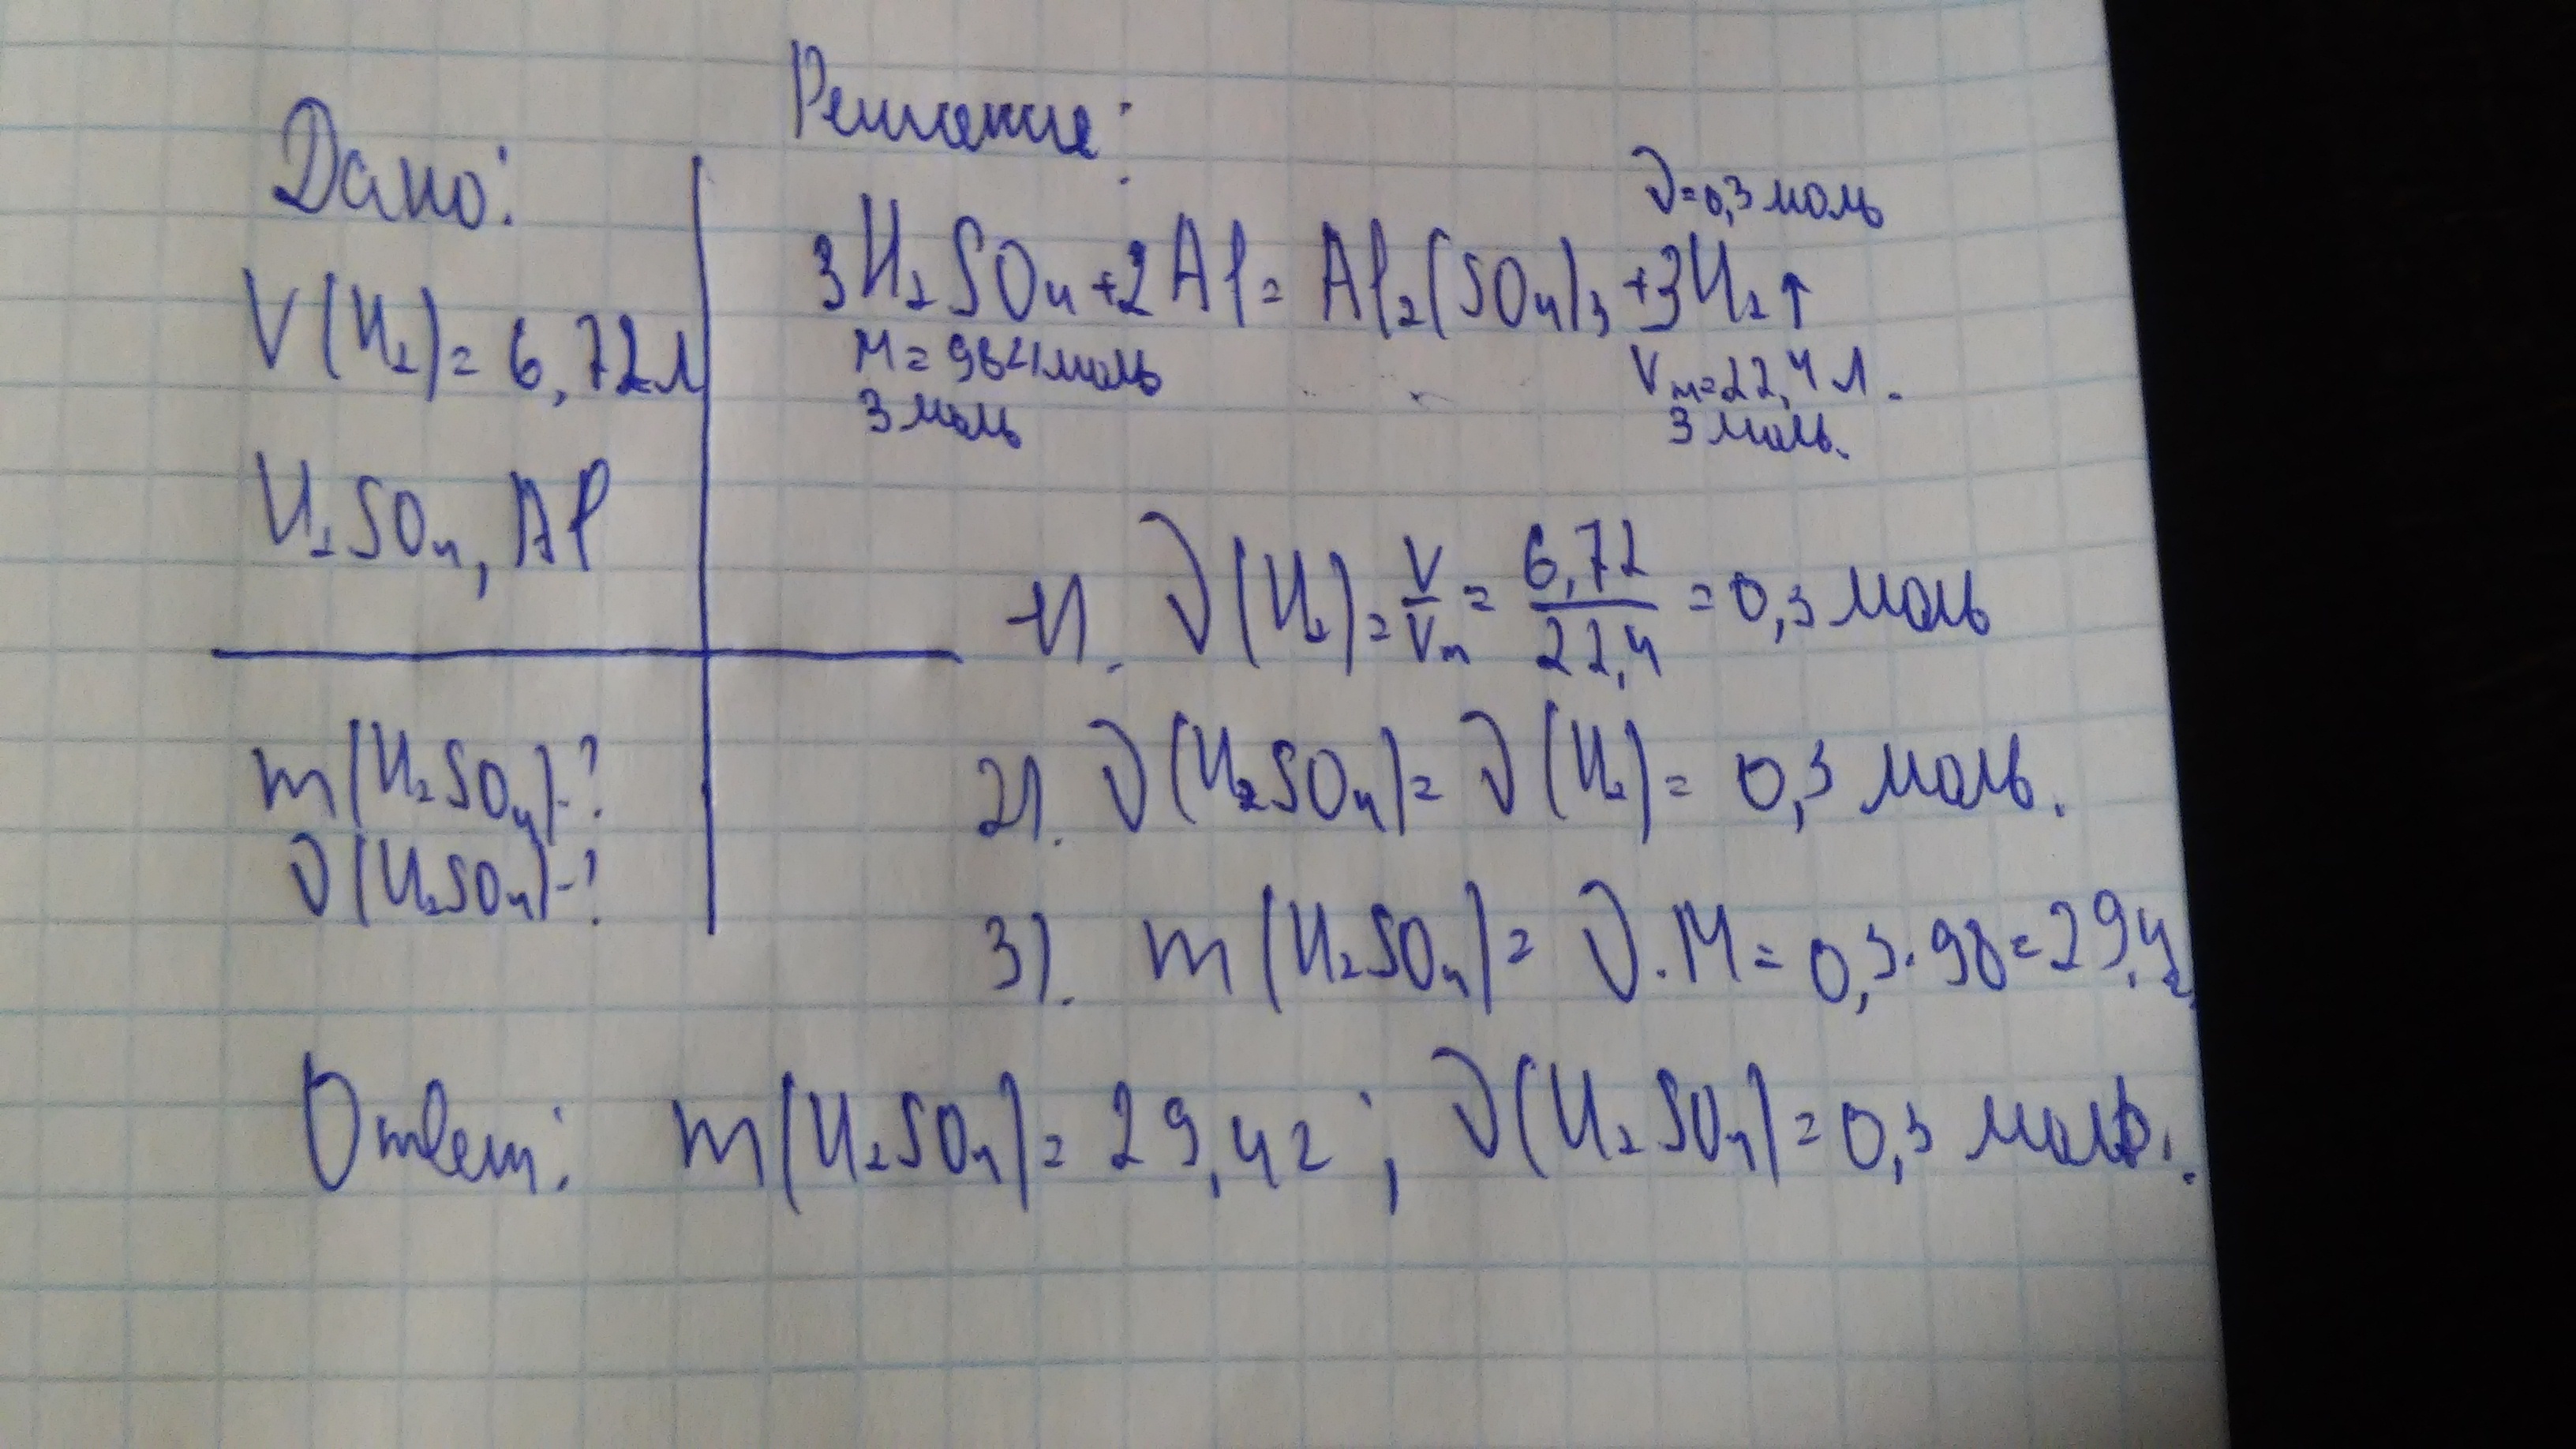 Дано:
V(H₂) = 6,72 л
H₂SO₄, Al
m(H₂SO₄) - ?
ν(H₂SO₄) - ?
Решение:
ν=0,3 моль
3H₂SO₄ + 2Al = Al₂(SO₄)₃ + 3H₂↑
M = 98 г/моль
Vm = 22,4 л.
3 моль
3 моль.
1). ν(H₂) = V/Vm = 6,72/22,4 = 0,3 моль
2). ν(H₂SO₄) = ν(H₂) = 0,3 моль.
3). m(H₂SO₄) = ν · M = 0,3 · 98 = 29,4 г
Ответ: m(H₂SO₄) = 29,4 г ; ν(H₂SO₄) = 0,3 моль.